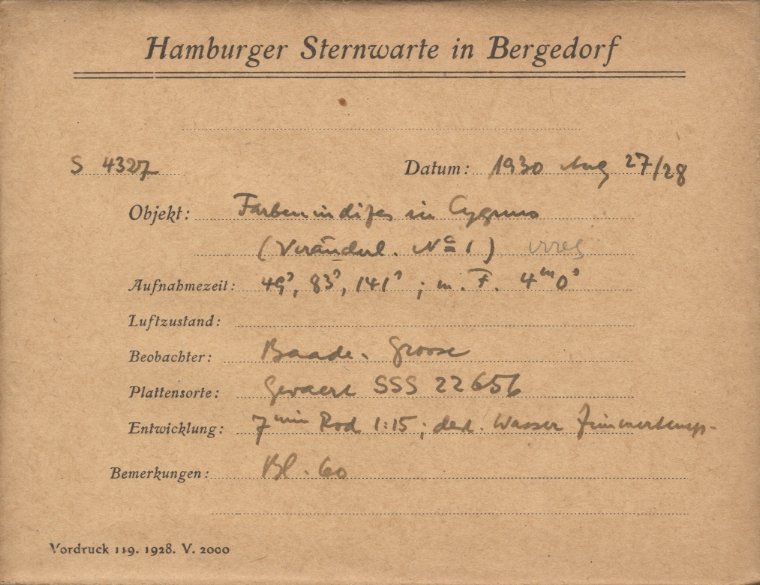 Hamburger Sternwarte in Bergedorf
S 4327 Datum: 1930 Aug 27/28
Objekt: Farbenindizes in Cygnus
(Veränderl. No 1) irreg
Aufnahmezeit: 49s, 83s, 141s; m. F. 4m0s
Luftzustand:
Beobachter: Baade. Groose
Plattensorte: Gevaert SSS 22656
Entwicklung: 7 min Rod 1:15; dest. Wasser Zimmertemp.
Bemerkungen: Bl. 60
Vordruck 119. 1928. V. 2000